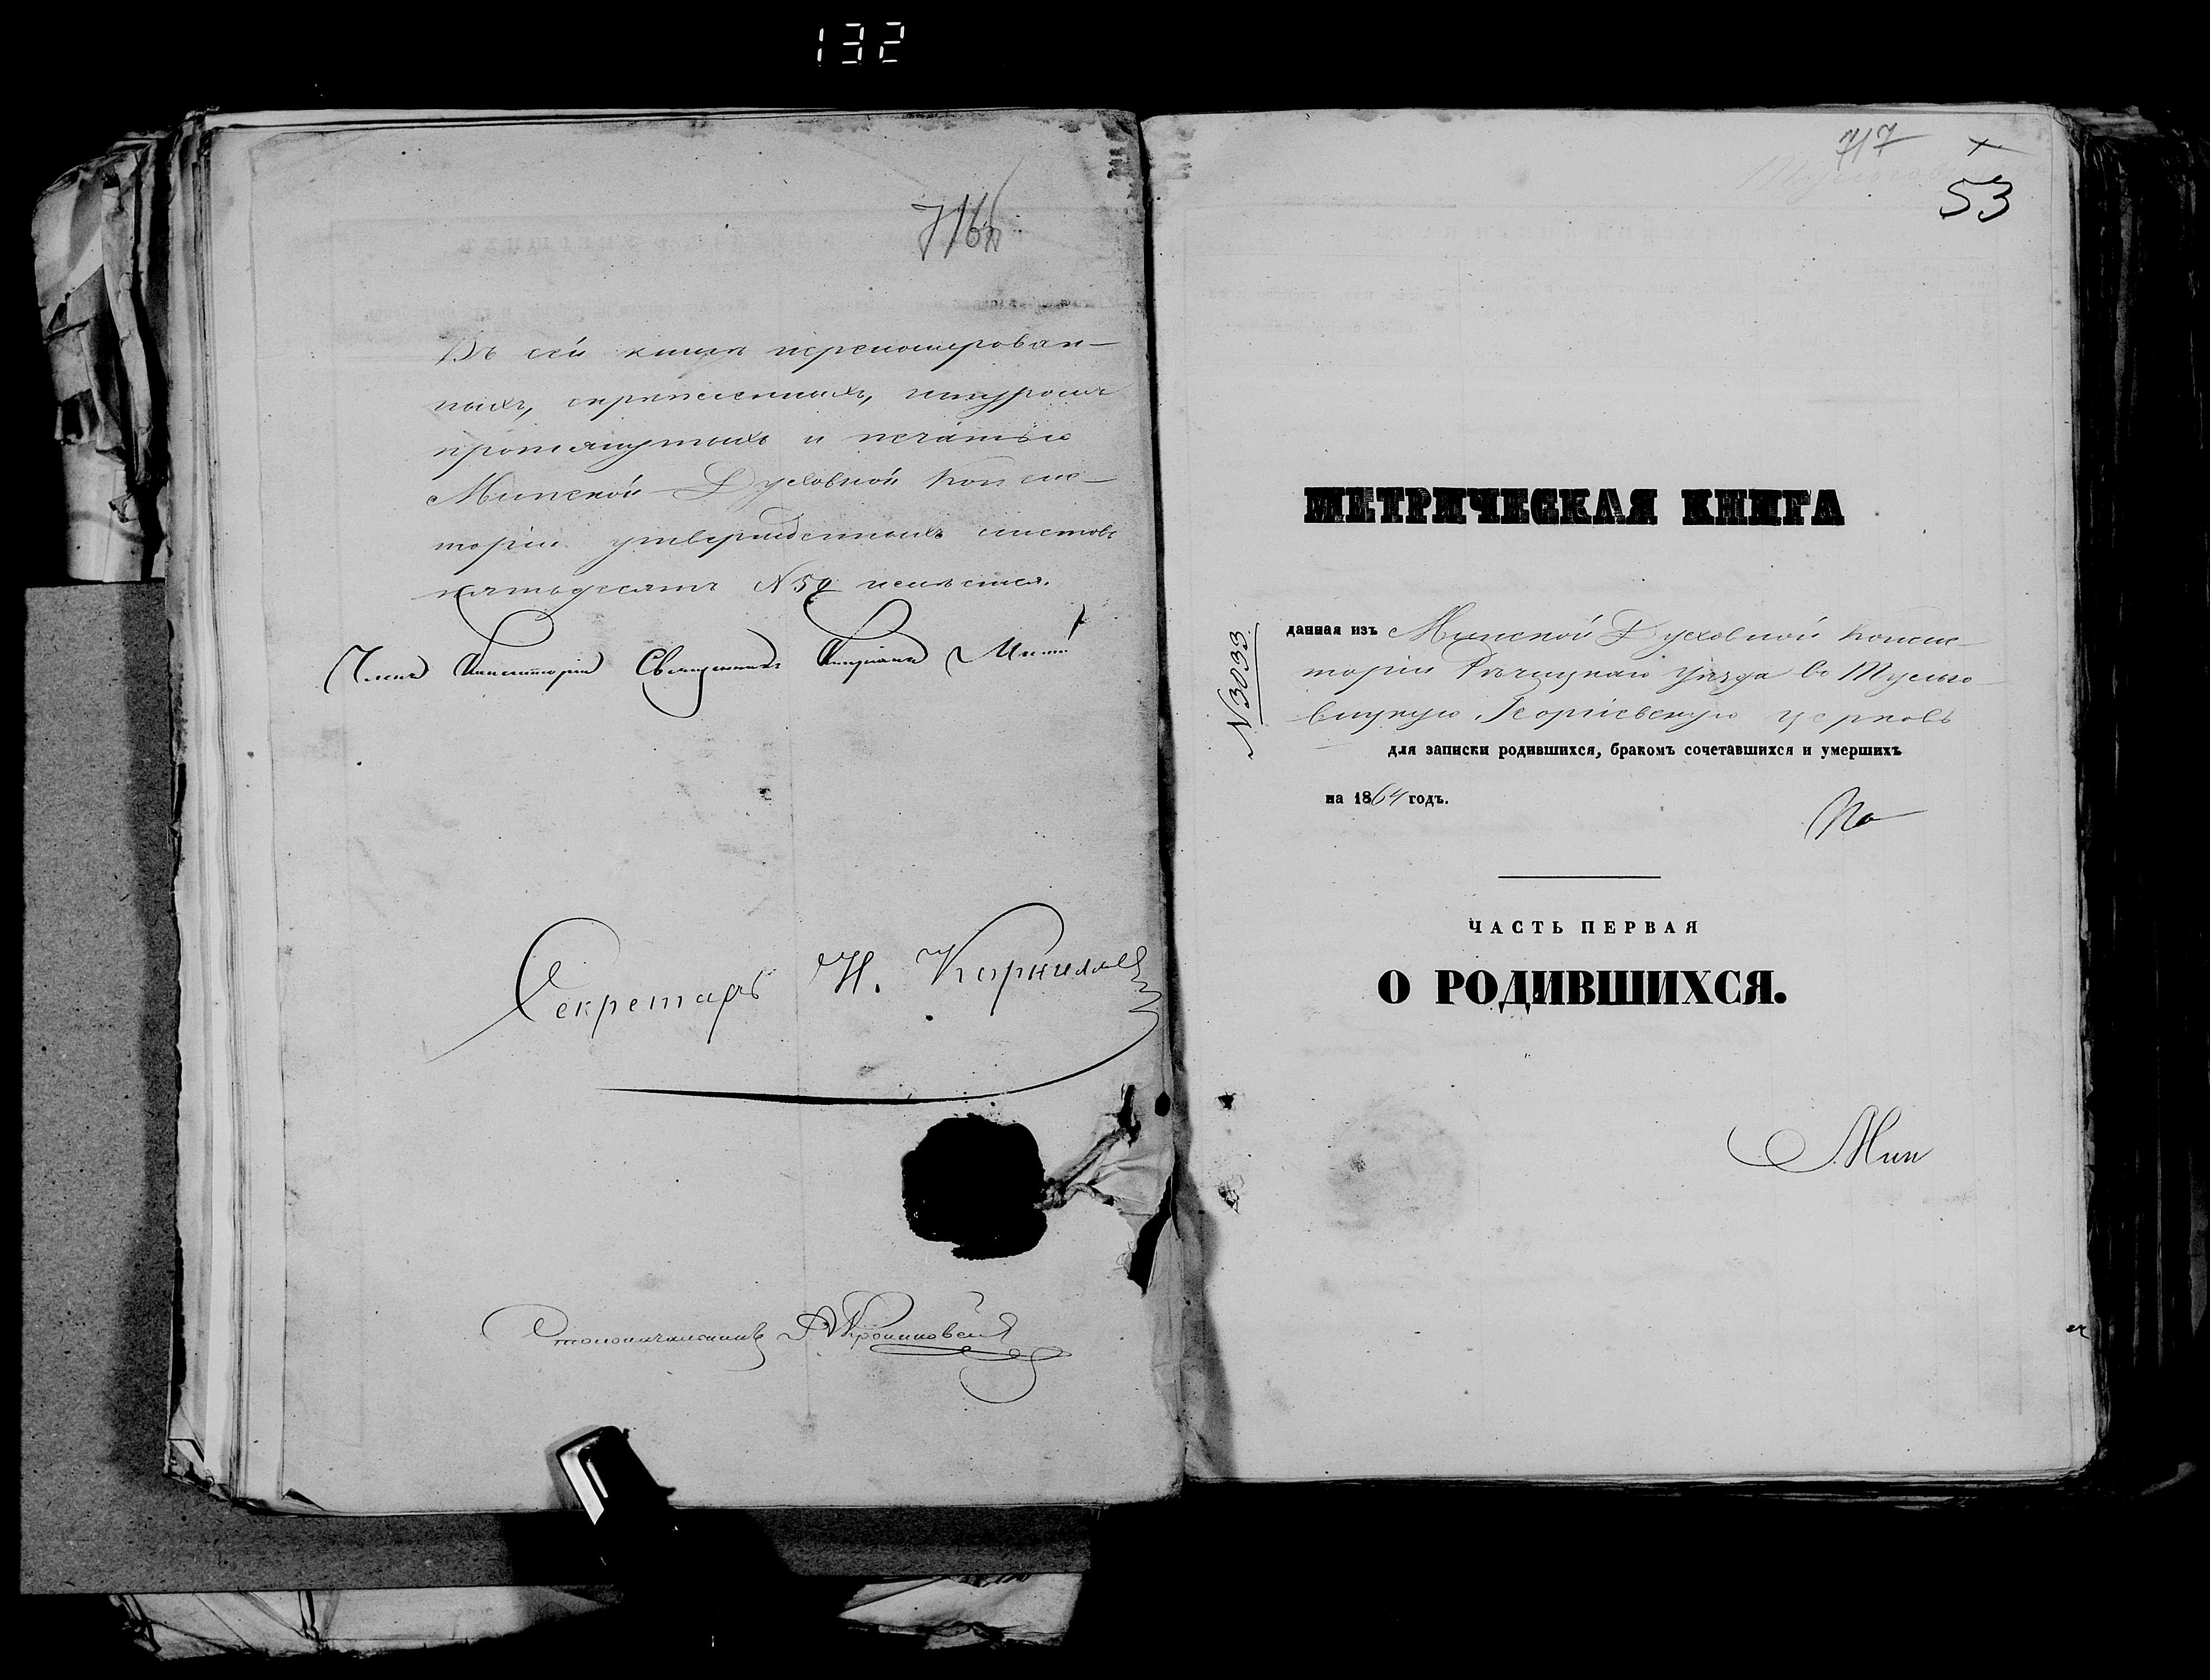 132
716
Въ сей книгѣ перенумерован-
ныхъ, скрѣпленныхъ, шнуромъ
протянутыхъ и печатью
Минской Духовной Консис-
торіи утвержденныхъ листовъ
пятьдесятъ имѣется.
Членъ Консисторіи Священникъ
Секретарь Н.
Столоначальникъ
717
53
МЕТРИЧЕСКАЯ КНИГА
N 3033
данная изъ Минской Духовной Консис-
торіи Рѣчицкаго уѣзда въ Тульго-
вицкую Георгіевскую церковь
для записки родившихся, бракомъ сочетавшихся и умершихъ
на 1864 годъ.
По
ЧАСТЬ ПЕРВАЯ
О РОДИВШИХСЯ.
Мин